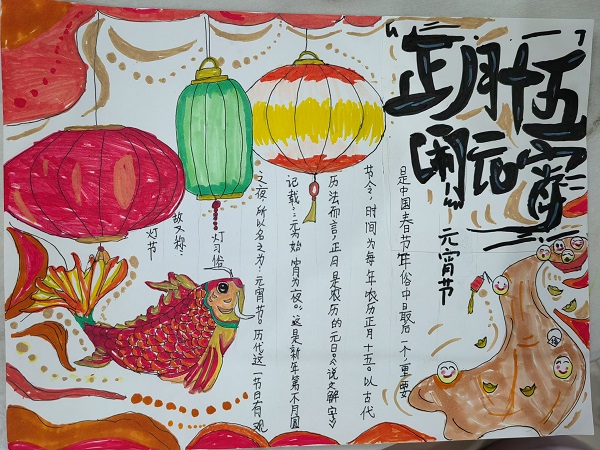 “正月十五”
闹元宵
——元宵节
是中国春节年俗中最后一个重要
节令，时间为每年农历正月十五。以古代
历法而言，正月是农历的元日。《说文解字》
记载：“元为始 宵为夜。”这是新年第一个月圆
之夜，所以名之为：元宵节。历代这一节日有观
灯习俗
故又称
灯节